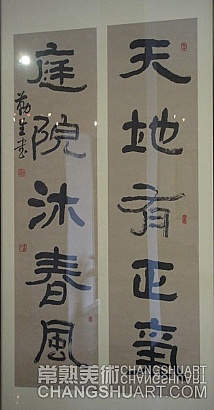 天地有正氣
庭院沐春風
勤生書
常熟美術 CHANGSHUART
CHANGSHUART.COM